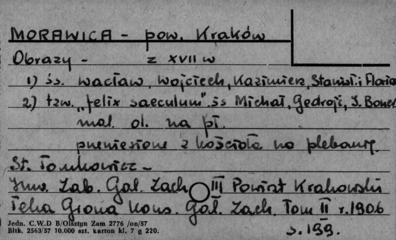 MORAWICA - pow. Kraków
Obrazy - z XVII w
1) śś. Wacław, Wojciech, Kazimierz, Stanisł. i Floria
2) tzw. "felix saeculum" śś Michał, Gedrojć, J.
mal. ol. na pł.
przeniesione z kościoła na plebanię.
St. Tomkowicz -
Inw. Zab. Gal. Zach. III Powiat Krakowski
Teka Grona Kons. Gal. Zach. Tom II r. 1906
s. 199.
Jedn. C.W.D B/Olsztyn Zam 2776 /on/57
Bltk. 2563/57 10.000 szt. karton kl. 7 g 220.